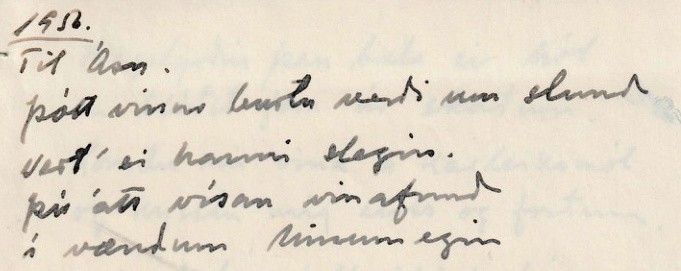 1956.
Til Ásu.
Þótt vinur burtu verði um stund
vert' ei harmi slegin.
Þú átt vísan vinafund
í vændum hinumegin